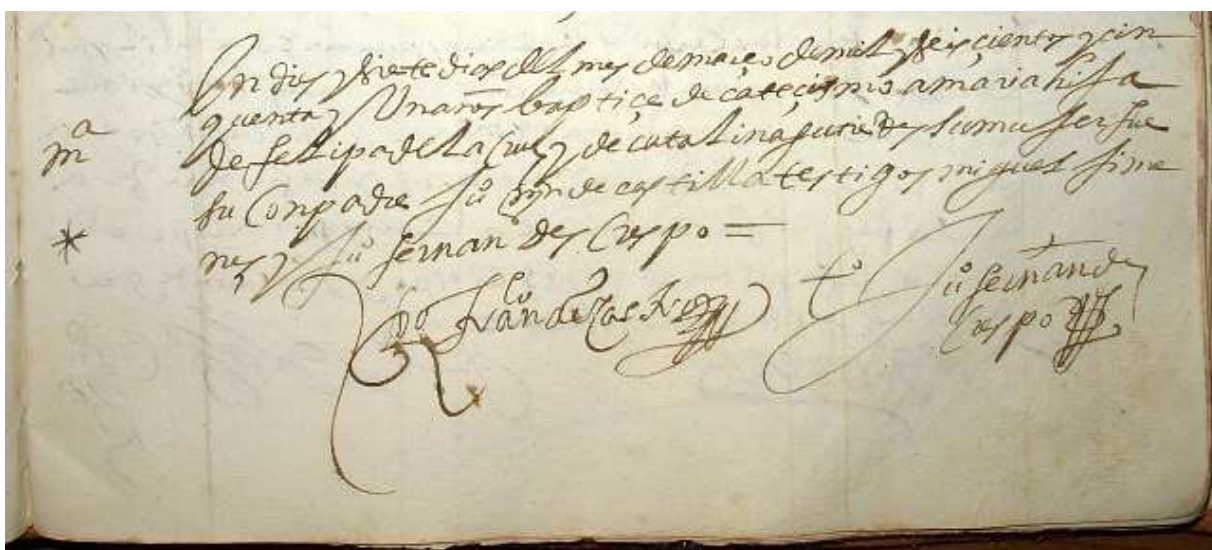 En dies y siete dias del mes de março de mil y seiscientos y cin
quenta y Un años baptiçe de cateçismo a maria hija
ma
de felipe de la Cruz y de catalina gutierres su muger fue
su Conpadre Juº mīn de castilla testigos miguel sime
nes y Juº fernandes Crespo =
*
franco de castro
tº Juº fernandes
Crespo